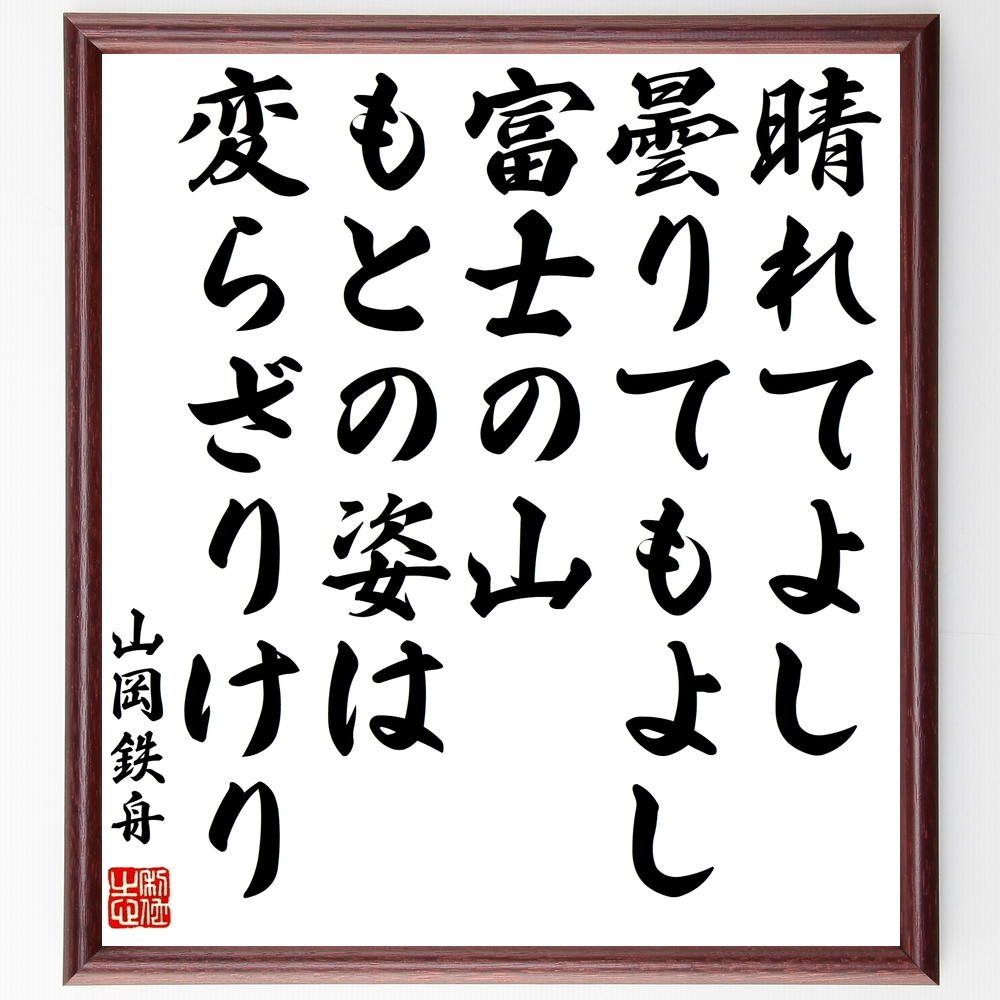 晴れてよし
曇りてもよし
富士の山
もとの姿は
変らざりけり
山岡鉄舟